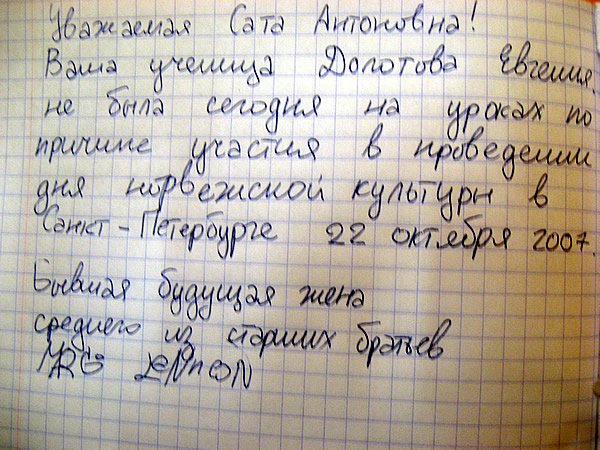 Уважаемая Сата Антоновна!
Ваша ученица Долотова Евгения.
не была сегодня на уроках по
причине участия в проведении
дня норвежской культуры в
Санкт-Петербурге 22 октября 2007.
Бывшая будущая жена
среднего из старших братьев